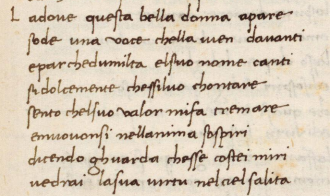 L adove questa bella donna apare
sode una voce chella uien davanti
eparchedumilta elsuo nome canti
sidolcemente chessiluo chontare
sento chelsuo valor mifa tremare
emuovonsi nellanima sospiri
dicendo ghuarda chesse costei miri
uedrai lasua uirtu nelciel salita